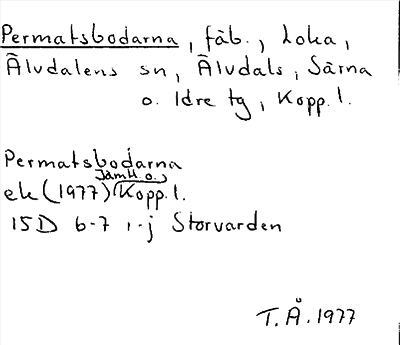 Permatsbodarna, fäb., Loka,
Älvdalens sn, Älvdals, Särna
o. Idre tg, Kopp. l.
Permatsbodarna
Jämtl. o.
ek (1977) Kopp. l.
15D 6-7 i-j Storvarden
T.Å. 1977